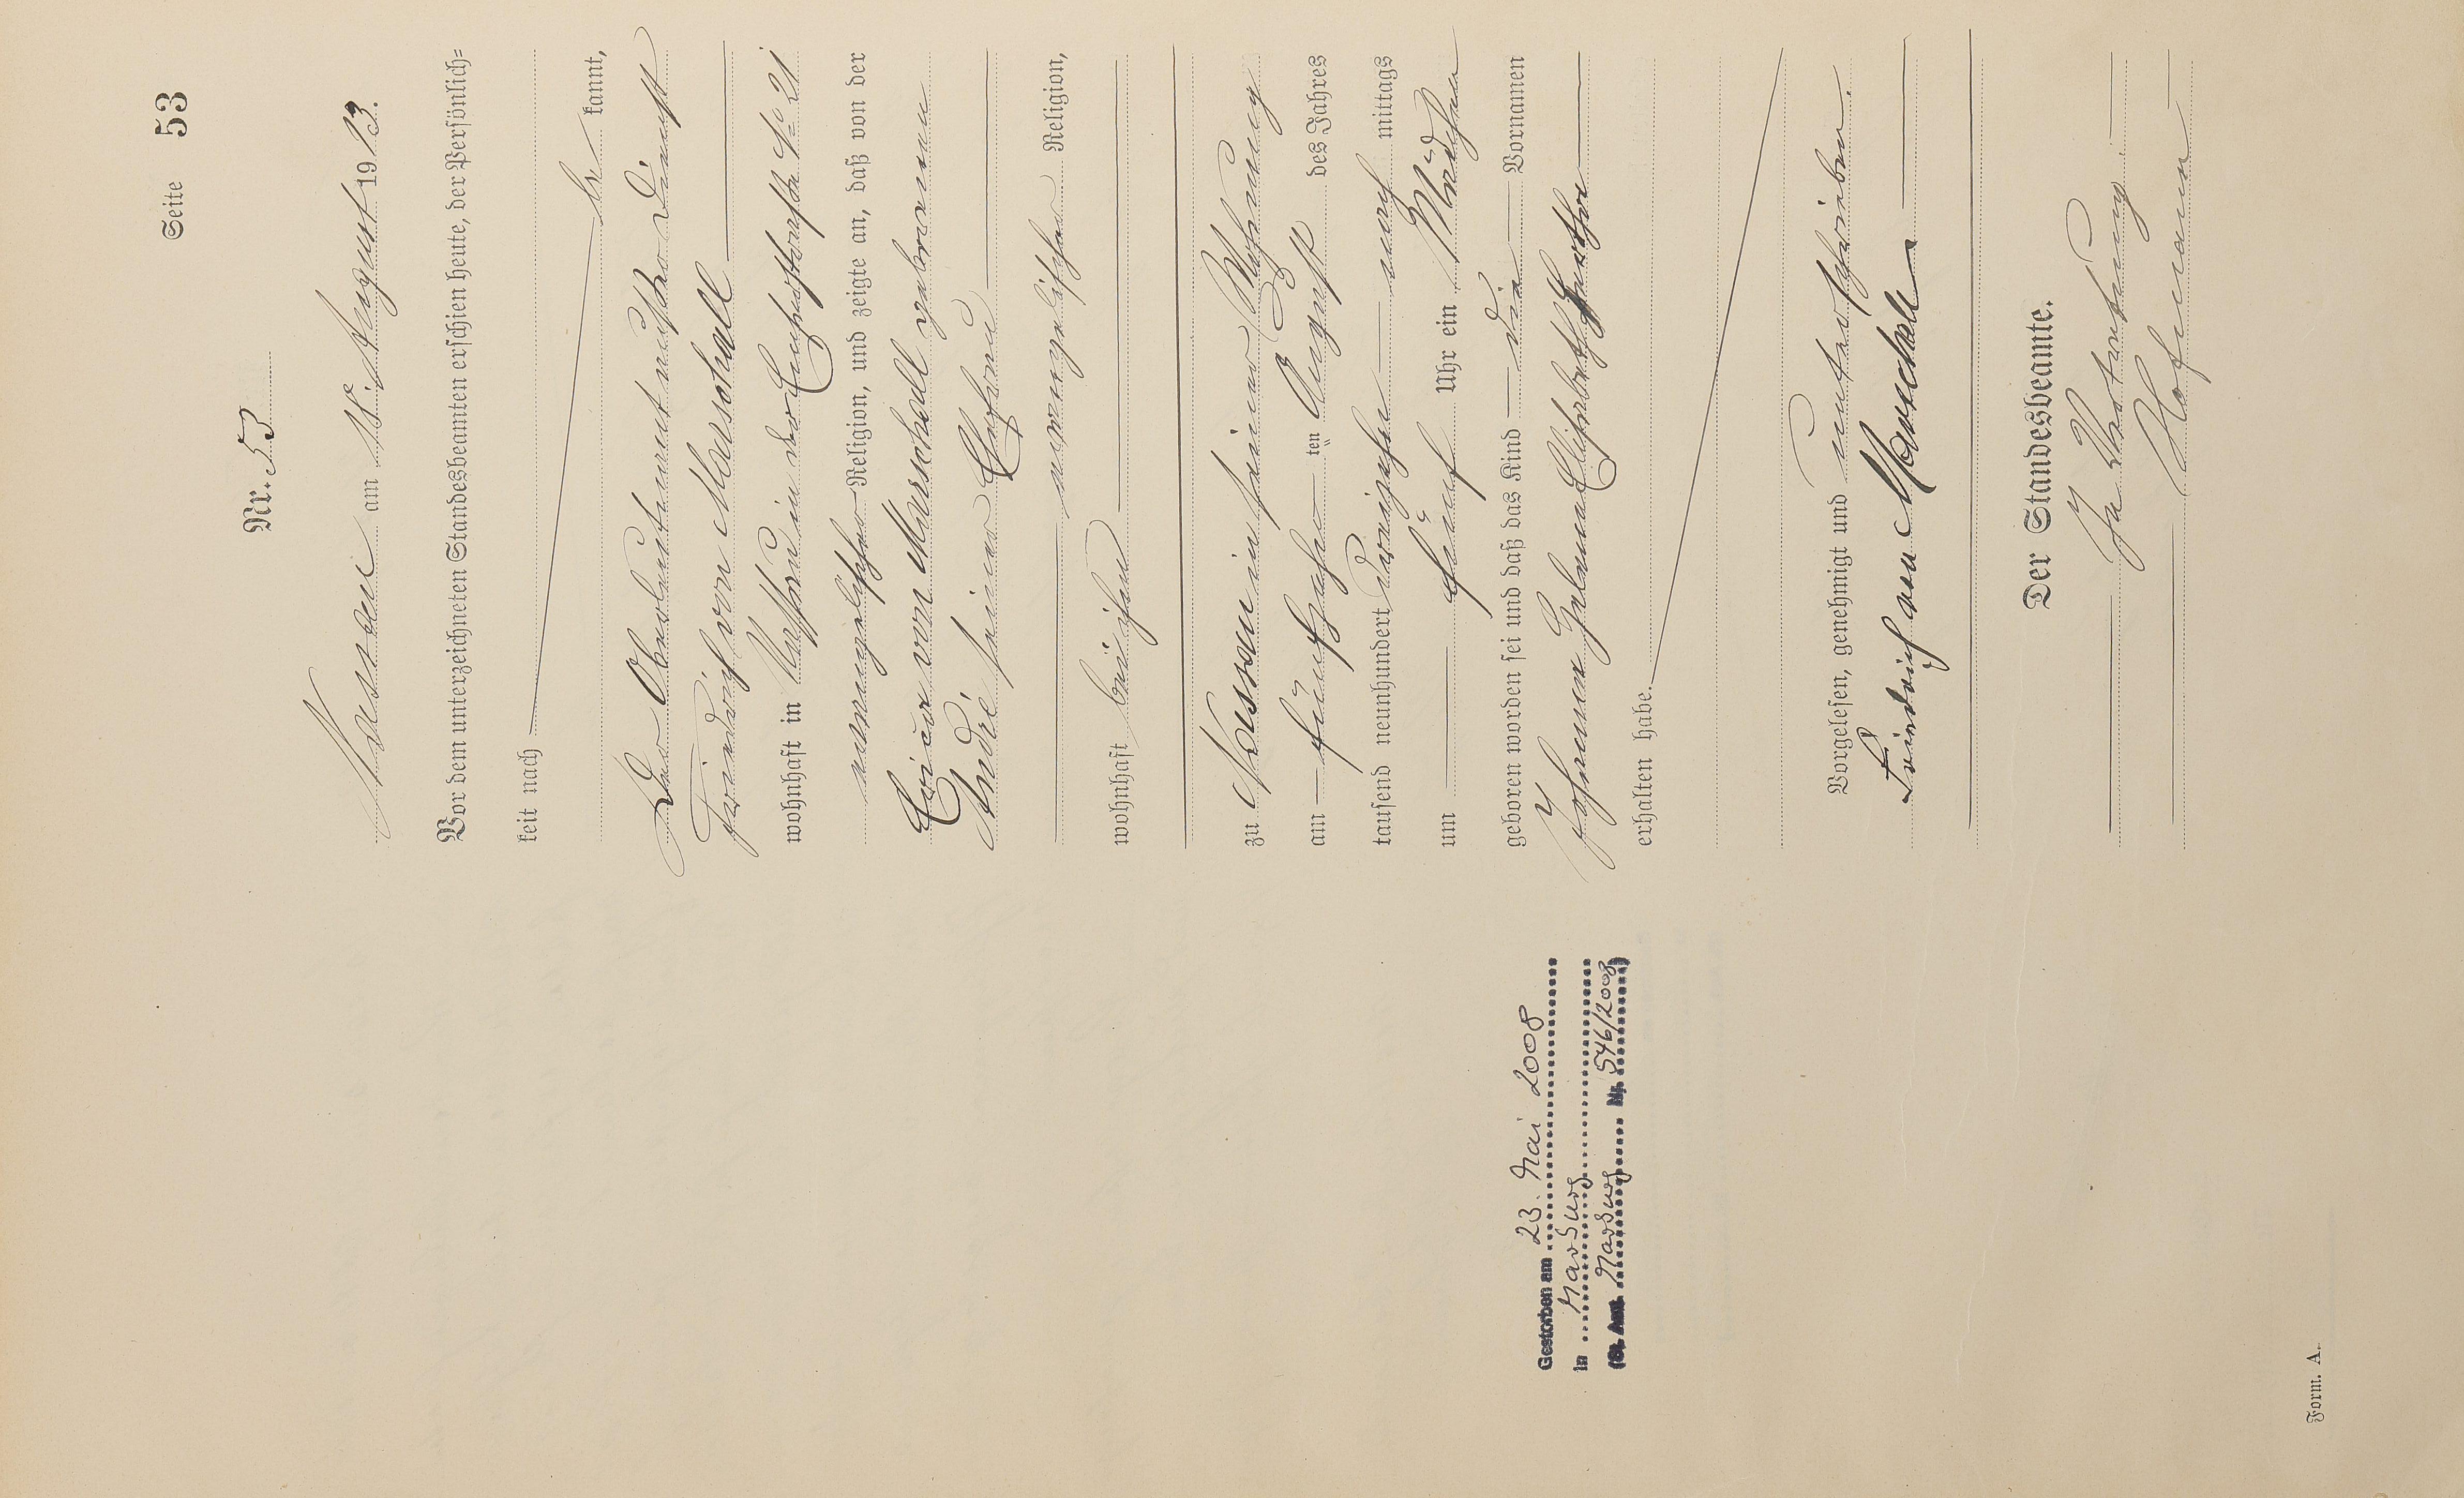 Seite 53
Nr. 53
Nassau am 18. August 1913.
Vor dem unterzeichneten Standesbeamten erschien heute, der Persönlich=
keit nach
be kannt,
Der Oberleutnant außer Dienst
Friedrich von Marschall
wohnhaft in Nassau in der Emserstraße No 21
evangelischer Religion, und zeigte an, daß von der
Erica von Marschall geborenen
André seiner Ehefrau
evangelischer Religion,
wohnhaft bei ihm
zu Nassau in seiner Wohnung
am fünfzehn ten August des Jahres
tausend neunhundert dreizehn nach mittags
um fünf Uhr ein Mädchen
geboren worden sei und daß das Kind die Vornamen
Johanna Helena Elisabeth Huberta
erhalten habe.
Vorgelesen, genehmigt und unterschrieben.
Friedrich von Marschall
Der Standesbeamte.
In Vertretung
Hofmann
Gestorben am 23. Mai 2008
in Marburg
(St. Amt Marburg Nr. 546/2008)
Form. A.